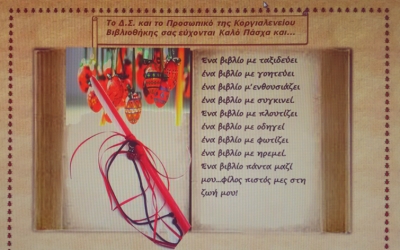 Το Δ.Σ. και το Προσωπικό της Κοργιαλενείου
Βιβλιοθήκης σας εύχονται Καλό Πάσχα και...
Ένα βιβλίο με ταξιδεύει
ένα βιβλίο με γοητεύει
ένα βιβλίο μ'ενθουσιάζει
ένα βιβλίο με συγκινεί
Ένα βιβλίο με πλουτίζει
ένα βιβλίο με οδηγεί
ένα βιβλίο με φωτίζει
ένα βιβλίο με ηρεμεί.
Ένα βιβλίο πάντα μαζί
μου...φίλος πιστός μες στη
ζωή μου!